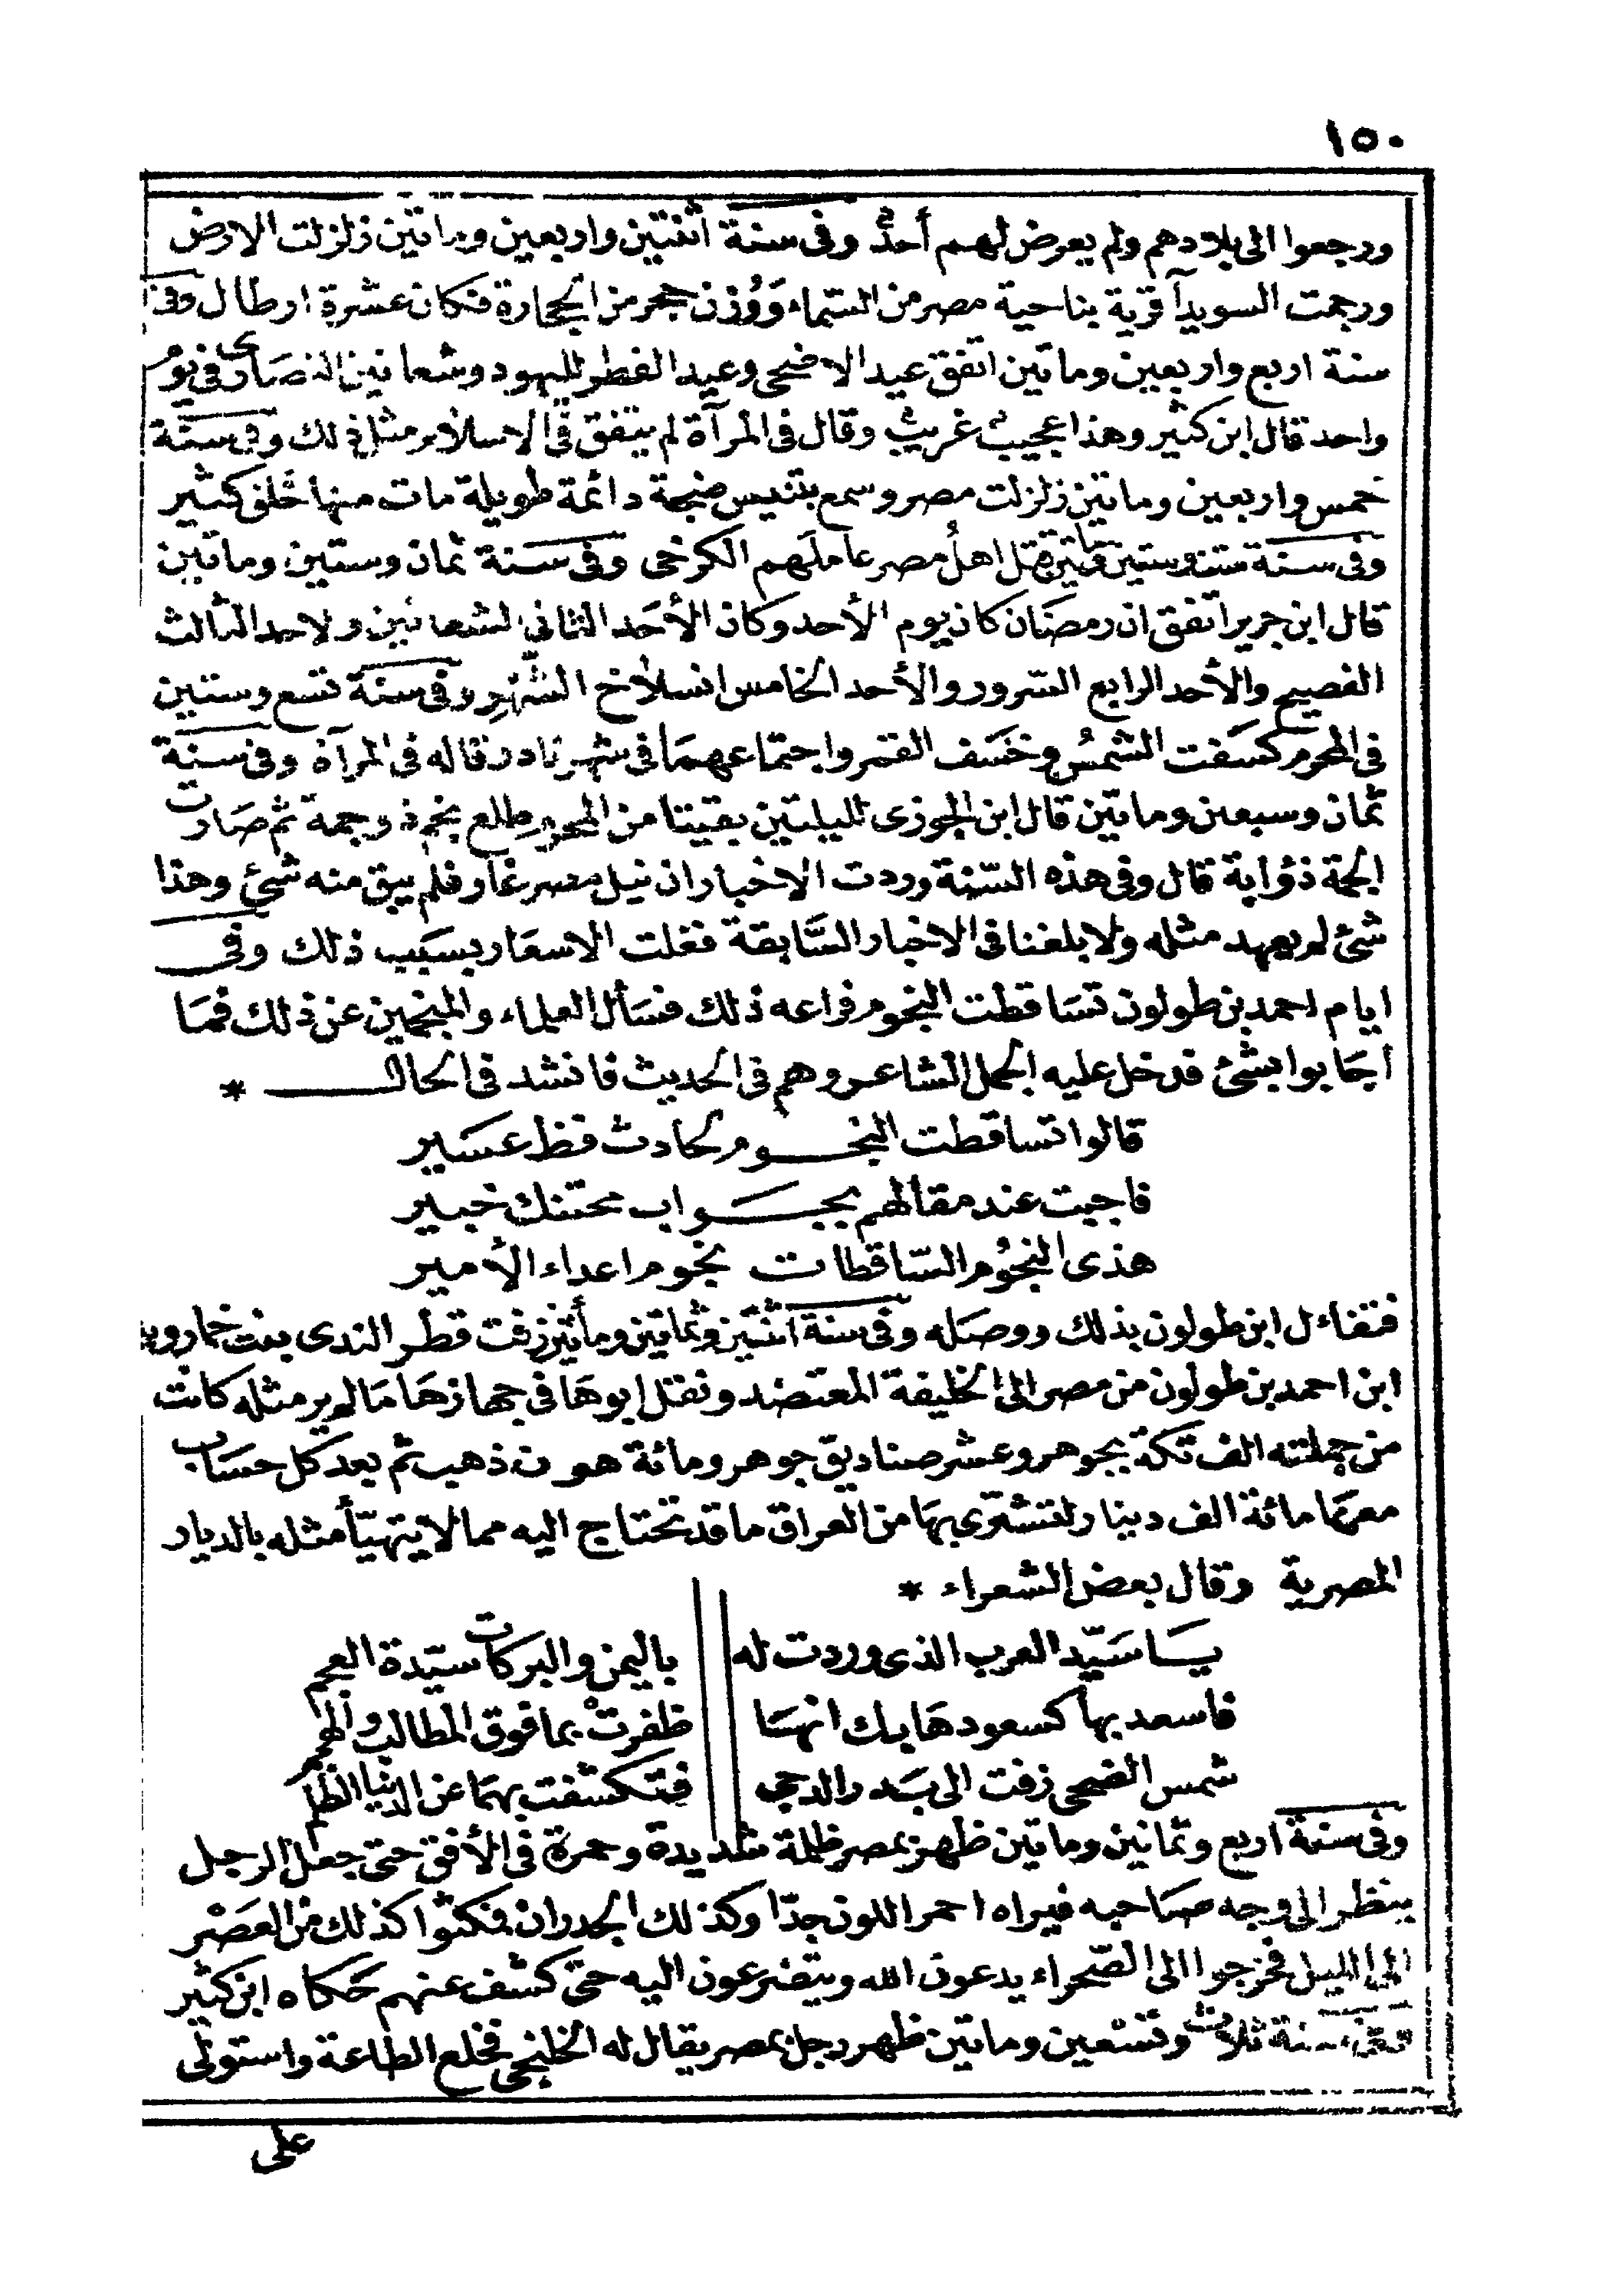 ١٥٠
ورجعوا الى بلادهم ولم يعرض لهم أحدٌ وفى سنة اثنتين واربعين وماتين زلزلت الارض
ورجمت السويدآ قرية بناحية مصر من السّماء وَوُزن حجر من الحجارة فكان عشرة ارطال وفى
سنة اربع واربعين وماتين اتفق عيد الاضحى وعيد الفطر لليهود وشعانين النصارى فى يوم
واحد قال ابن كثير وهذا عجيبٌ غريبٌ وقال فى المرآة لم يتفق فى الاسلام مثل ذلك وفى سنة
خمس واربعين وماتين زلزلت مصر وسمع بتنيس ضجة دائمة طويلة مات منها خلق كثير
وفى سنة ست وستين وماتين قتل اهلُ مصر عاملَهم الكرخى وفى سنة ثمان وستين وماتين
قال ابن جرير اتفق ان رمضان كان يوم الأحد وكان الأحَد الثاني الشعانين والاحد الثالث
الفصيح والأحد الرابع السرور والأحد الخامس انسلاخ الشّهر وفى سنة تسع وستين
فى المحرم كسَفت الشمسُ وخسَف القمر واجتماعهمَا فى شهر نادر قاله فى المرآة وفى سنة
ثمان وسبعين وماتين قال ابن الجوزى لليلتين بقيتا من المحرم طلع نجم ذو جمة ثم صَارت
الجمة ذؤابة قال وفى هذه السّنة وردت الاخبار ان نيل مصر غار فلم يبق منه شئ وهذا
شئ لم يعهد مثله ولا بلغنا فى الاخبار السَّابقة فغلت الاسعَار بسبَب ذلك وفى
ايام احمد بن طولون تسَاقطت النجوم فراعه ذلك فسَأل العلماء والمنجمين عن ذلك فمَا
اجَابوا بشئ فدخل عليه الجمل الشاعر وهم فى الحديث فانشد فى الحال *
قالوا تساقطت النجوم لحادث فظ عسَير
فاجبت عند مقالهم بجوَاب محتنك خبير
هذى النجُوم السّاقطات نجوم اعداء الأمير
فتفاءل ابن طولون بذلك ووصَله وفى سنة اثنتين وثمانين ومأتين زفت قطر الندى بنت خمارويه
ابن احمد بن طولون من مصر الى الخليفة المعتضد ونقل ابوهَا فى جهازهَا مَا لم ير مثله كانت
من جملته الف تكة بجوهر وعشر صناديق جوهر ومائة هون ذهب ثم بعد كل حسَاب
معهَا مائة الف دينار لتشترى بهَا من العراق ما قد تحتاج اليه مما لا يتهيّأ مثله بالديار
المصرية وقال بعض الشعراء *
يَا سَيّد العرب الذى وردت له بِاليمن والبركات سيّدة العجم
فاسعد بها كسعودهَا بك انهَا ظفرتْ بما فوق المطالب والهمم
شمس الضحى زفت الى بَدر الدجى فتكشفت بهمَا عن الدنيا الظلم
وفى سنة اربع وثمانين وماتين ظهر بمصر ظلمة شديدة وحمرة فى الأفق حتى جعل الرجل
ينظر الى وجه صَاحبه فيراه احمر اللون جدّا وكذلك الجدران فمكثوا كذلك من العَصْر
الى الليل فخرجوا الى الصّحراء يدعون الله ويتضرعون اليه حتى كشف عنهم حَكاه ابن كثير
وفى سنة ثلاث وتسْعين وماتين ظهر رجل بمصر يقال له الخلنجى فخلع الطاعة واستولى
على